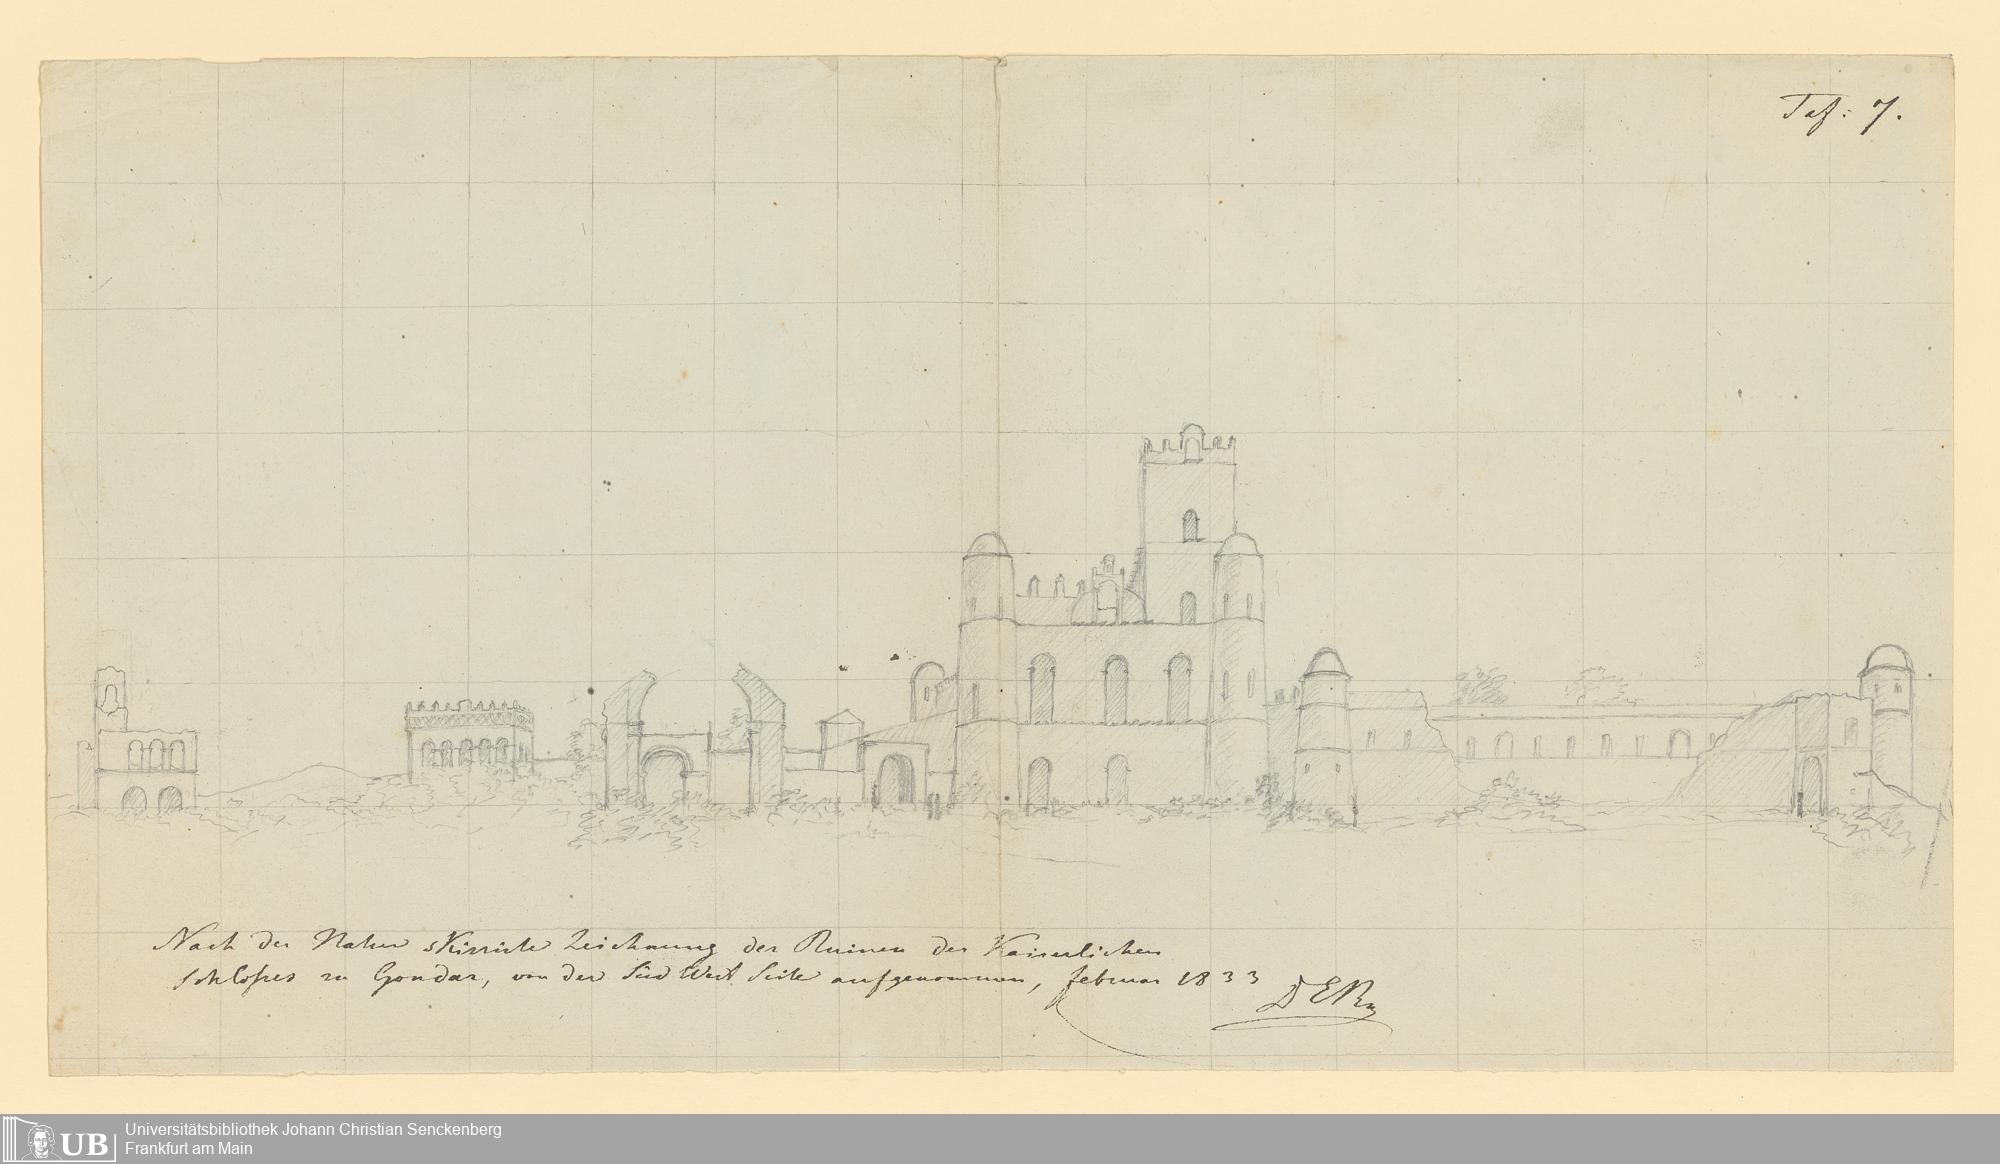 Taf: 7.
Nach der Natur skizzirte Zeichnung der Ruinen des Kaiserlichen
Schloßes zu Gondar, von der Süd West Seite aufgenommen, februar 1833
UB
Universitätsbibliothek Johann Christian Senckenberg
Frankfurt am Main